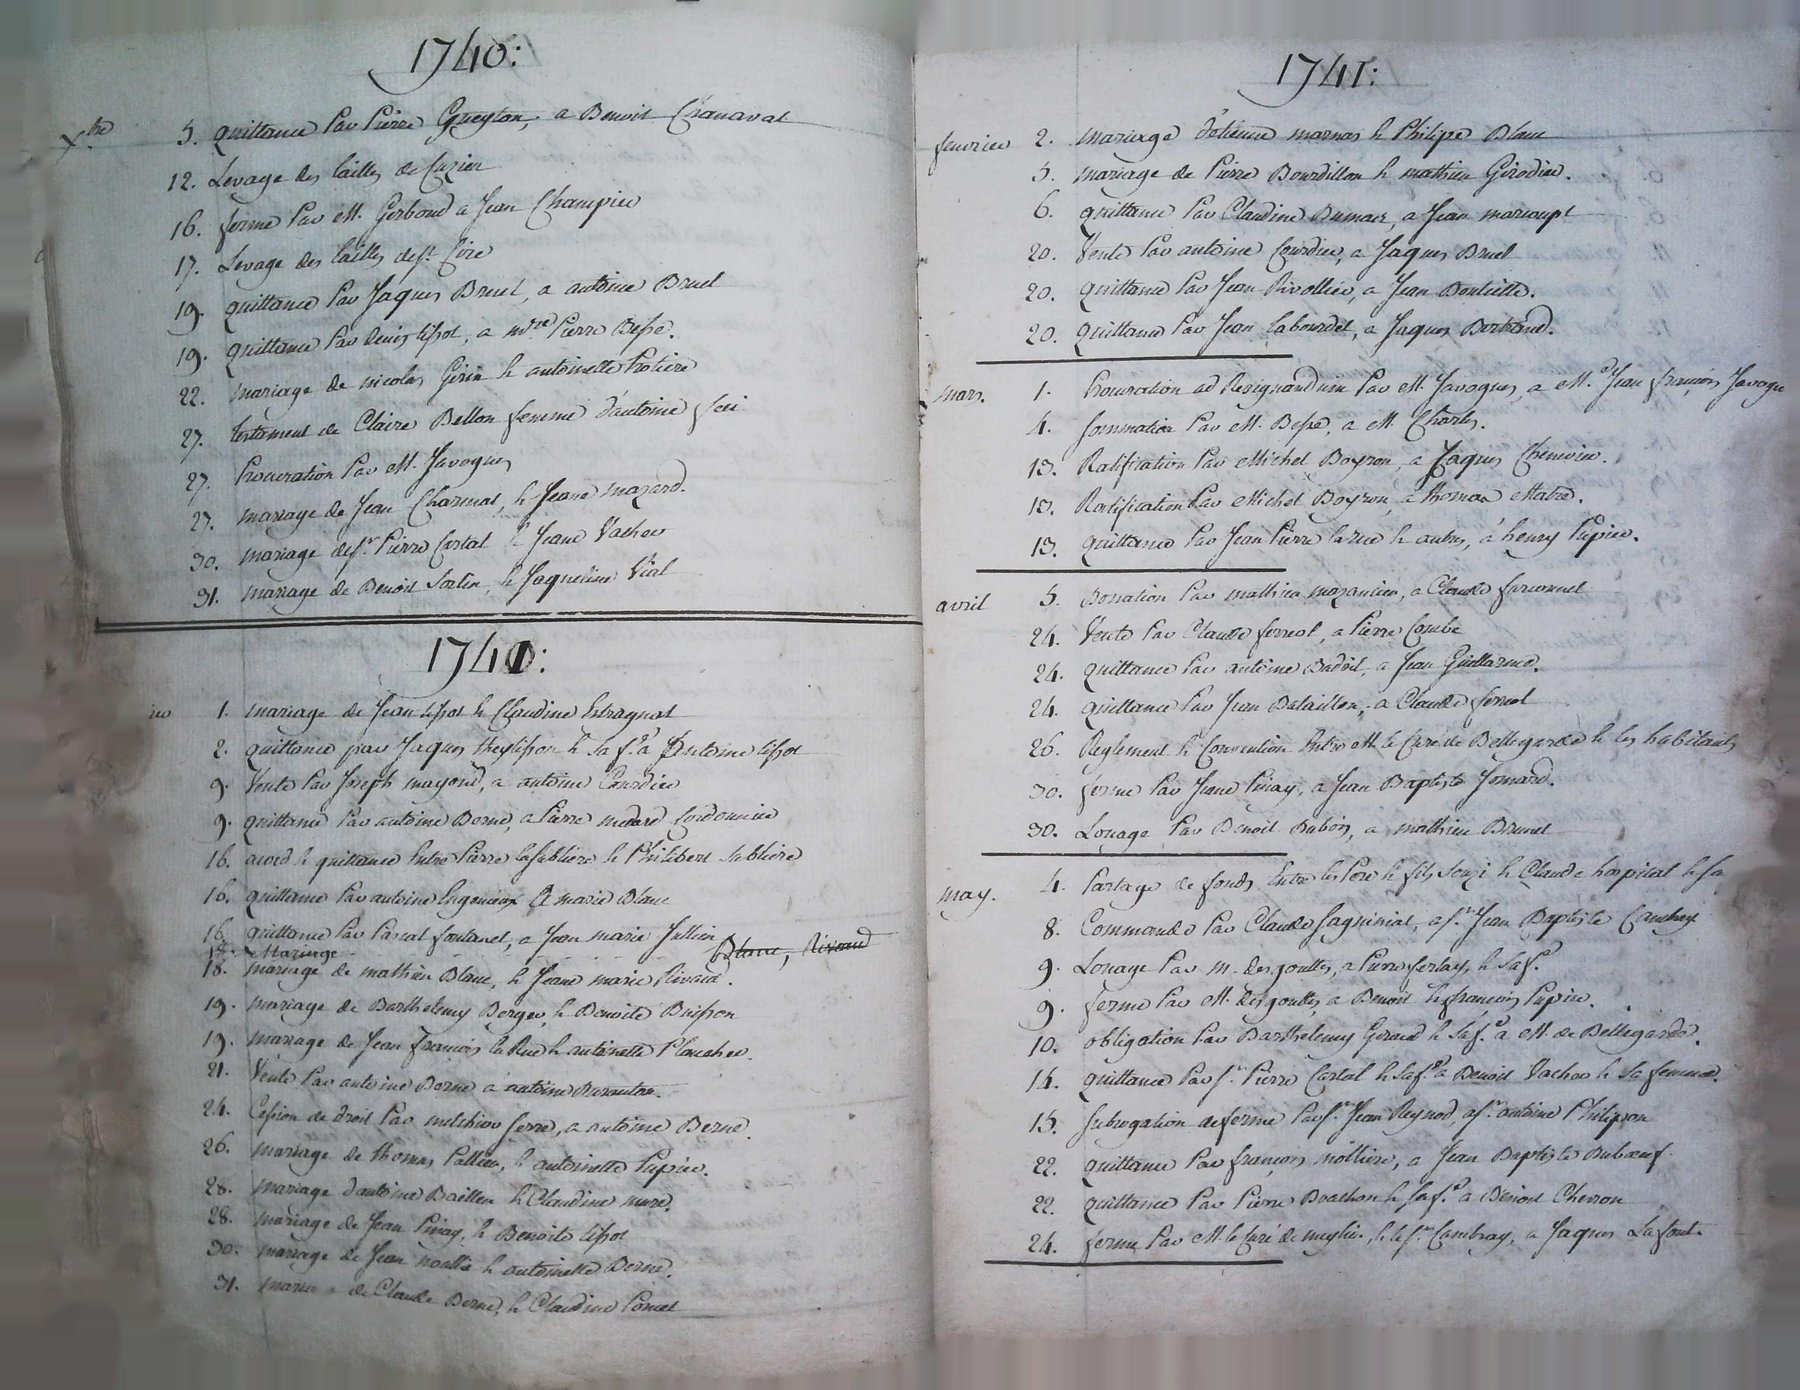 1740:
Xbre 5. quittance Par Pierre Gueyton, a Benoit Chanavat
12. Levage des tailles de Cuzieu
16. ferme Par M. Gerboud a Jean Champier
17. Levage des tailles de st Cire
19. quittance Par Jaques Bruel, a antoine Bruel
19. quittance Par Denis tissot, a mtre Pierre Besse.
22. mariage de nicolas Girin & antoinette Protiere
27. testament de Claire Bellon femme d'antoine
27. Procuration Par M. Javogues
27. mariage de Jean Charmat, & Jeane mazard.
30. mariage de sr Pierre Cartal & Jeane Vacher
31. mariage de Benoit & Jaqueline Vial
1741:
1. mariage de Jean tissot & Claudine Estragnat
2. quittance par Jaques & sa fe a antoine tissot
9. Vente Par Joseph mayoud, a antoine Courdier
9. quittance Par antoine Borne, a Pierre medard Cordonnier
16. acord & quittance Entre Pierre lasabliere & Philibert sabliere
16. quittance Par antoine & marie Blanc
16. quittance Par Pascal fontanet, a Jean marie Jullien
18. Mariage Blanc, Rivaud
18. mariage de mathieu Blanc, & Jeane marie Rivaud.
19. mariage de Barthelemy Berger, & Benoite Buisson
19. mariage de Jean francois la Rue & antoinette Plancher.
21. Vente Par antoine Borne a antoine
24. Cession de droit Par melchior ferre, a antoine Berne.
26. mariage de thomas Pallier, & antoinette Papier.
28. mariage d'antoine Baillen & Claudine mure.
28. mariage de Jean Pinay, & Benoite tissot
30. mariage de Jean & antoinette Berne.
31. de Claude Berne, & Claudine Poncet
1741:
fevrier 2. mariage d'etienne marnas & Philipe Blanc
5. mariage de Pierre Bourdillon & mathieu Girodier.
6. quittance Par Claudine Dumas, a Jean
20. Vente Par antoine Courdier, a Jaques Bruel
20. quittance Par Jean Rivollier, a Jean Bouteille.
20. quittance Par Jean labourdet, a Jaques Berthand.
mars. 1. Procuration ad Resignandum Par M. Javogues, a M.e Jean françois Javogue
4. sommation Par M. Besse, a M. Charles.
13. Ratification Par Michel Boyron, a Jaques Chenevier.
13. Ratification Par Michel Boyron, a thomas
13. quittance Par Jean Pierre la rue & autres, à henry Papier.
avril 5. Donation Par mathieu mazancieu, a Claude farconnet
24. Vente Par Claude ferreol, a Pierre Combe
24. quittance Par antoine Badoil, a Jean Guillarme.
24. quittance Par Jean Bataillon, a Claude ferreol
26. Reglement & Convention Entre M. le Curé de Bellegarde & les habitants
30. ferme Par Jeane Pinay, a Jean Baptiste Jomard.
30. Louage Par Benoit Dubois, a mathieu Brunet
may. 4. Partage de fonds Entre les Pere & fils & Claude hospital & sa
8. Commande Par Claude Jaquiniat, a sr Jean Baptiste Cambray
9. Louage Par M. desgouttes, a Pierre ferlay, & sa fe
9. ferme Par M. desgouttes, a Benoit & françois Papier.
10. obligation Par Barthelemy Girard & sa fe a M. de Bellegarde.
14. quittance Par sr Pierre Cartal & sa fe a Benoit Vacher & sa femme.
15. subrogation de ferme Par sr Jean Reynod, a sr antoine Philipon
22. quittance Par françois molliere, a Jean Baptiste Duboeuf
22. quittance Par Pierre Brachon & sa fe a Benoit Chevron
24. ferme Par M. le Curé de meylieu, & le sr Cambray, a Jaques Lafont.